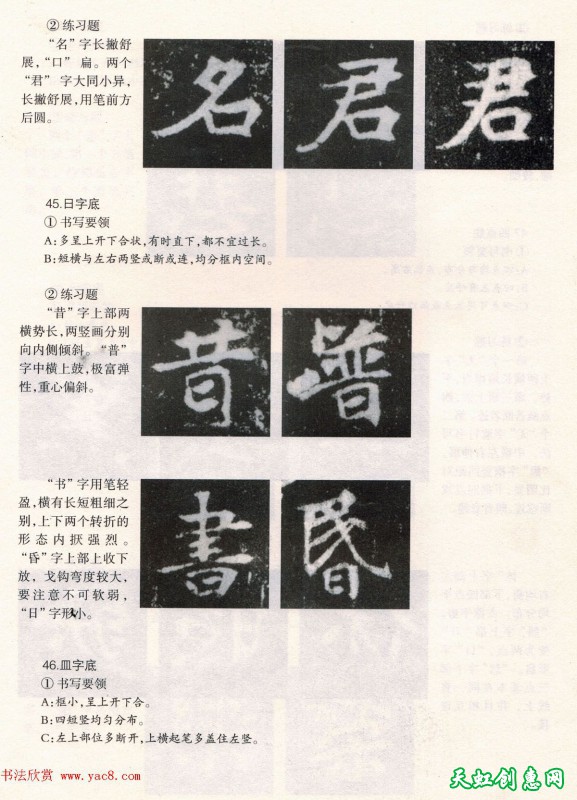 ②练习题
“名”字长撇舒
展,“口”扁。两个
“君”字大同小异,
长撇舒展,用笔前方
后圆。
名 君 君
45.日字底
①书写要领
A:多呈上开下合状,有时直下,都不宜过长。
B:短横与左右两竖或断或连,均分框内空间。
②练习题
“昔”字上部两
横势长,两竖画分别
向内侧倾斜。“普”
字中横上鼓,极富弹
性,重心偏斜。
昔 普
“书”字用笔轻
盈,横有长短粗细之
别,上下两个转折的
形态内抧强烈。
“昏”字上部上收下
放,戈钩弯度较大,
要注意不可软弱,
“日”字形小。
書 昬
46.皿字底
①书写要领
A:框小,呈上开下合。
B:四短竖均匀分布。
C:左上部位多断开,上横起笔多盖住左竖。
书法欣赏 www.yac8.com
天虹创意网